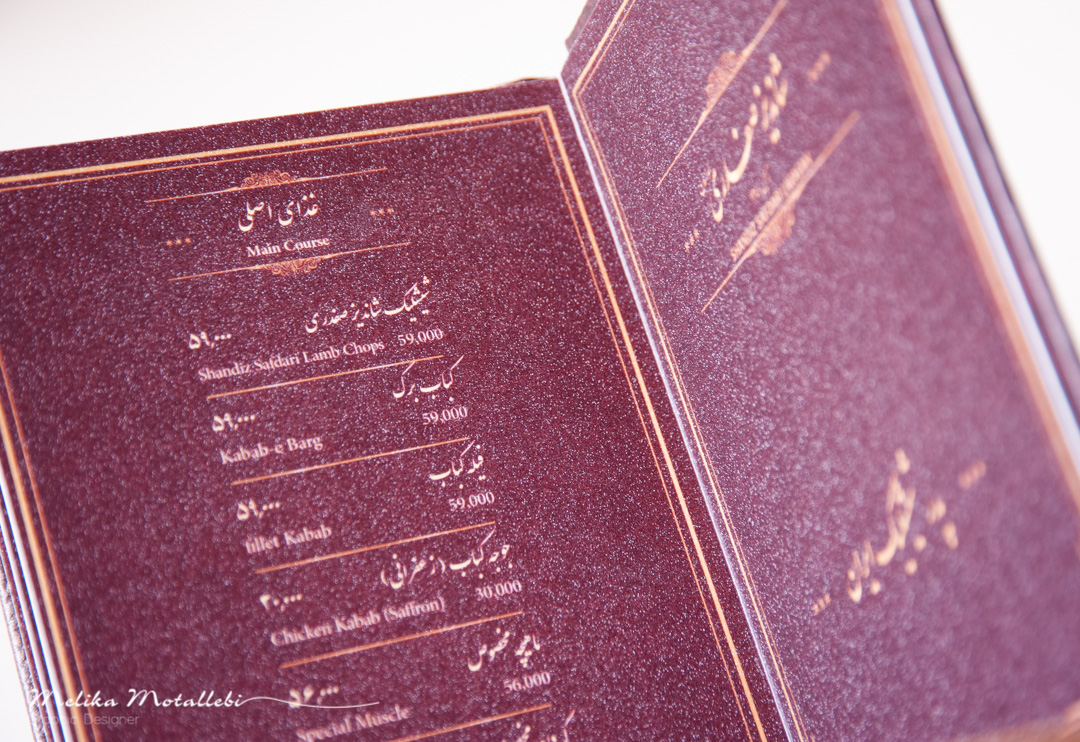 غذای اصلی
Main Course
شیشلیک شاندیز صفدری
۵۹,۰۰۰
Shandiz Safdari Lamb Chops 59.000
کباب برگ
۵۹,۰۰۰
59.000
Kabab-e Barg
فیله کباب
۵۹,۰۰۰
59.000
fillet Kabab
جوجه کباب (زعفرانی)
۳۰,۰۰۰
30.000
Chicken Kabab (Saffron)
ماهیچه مخصوص
۵۶,۰۰۰
56.000
Special Muscle
شاندیز صفدری
پدر شیشلیک ایران
Melika Motallebi
Graphic Designer